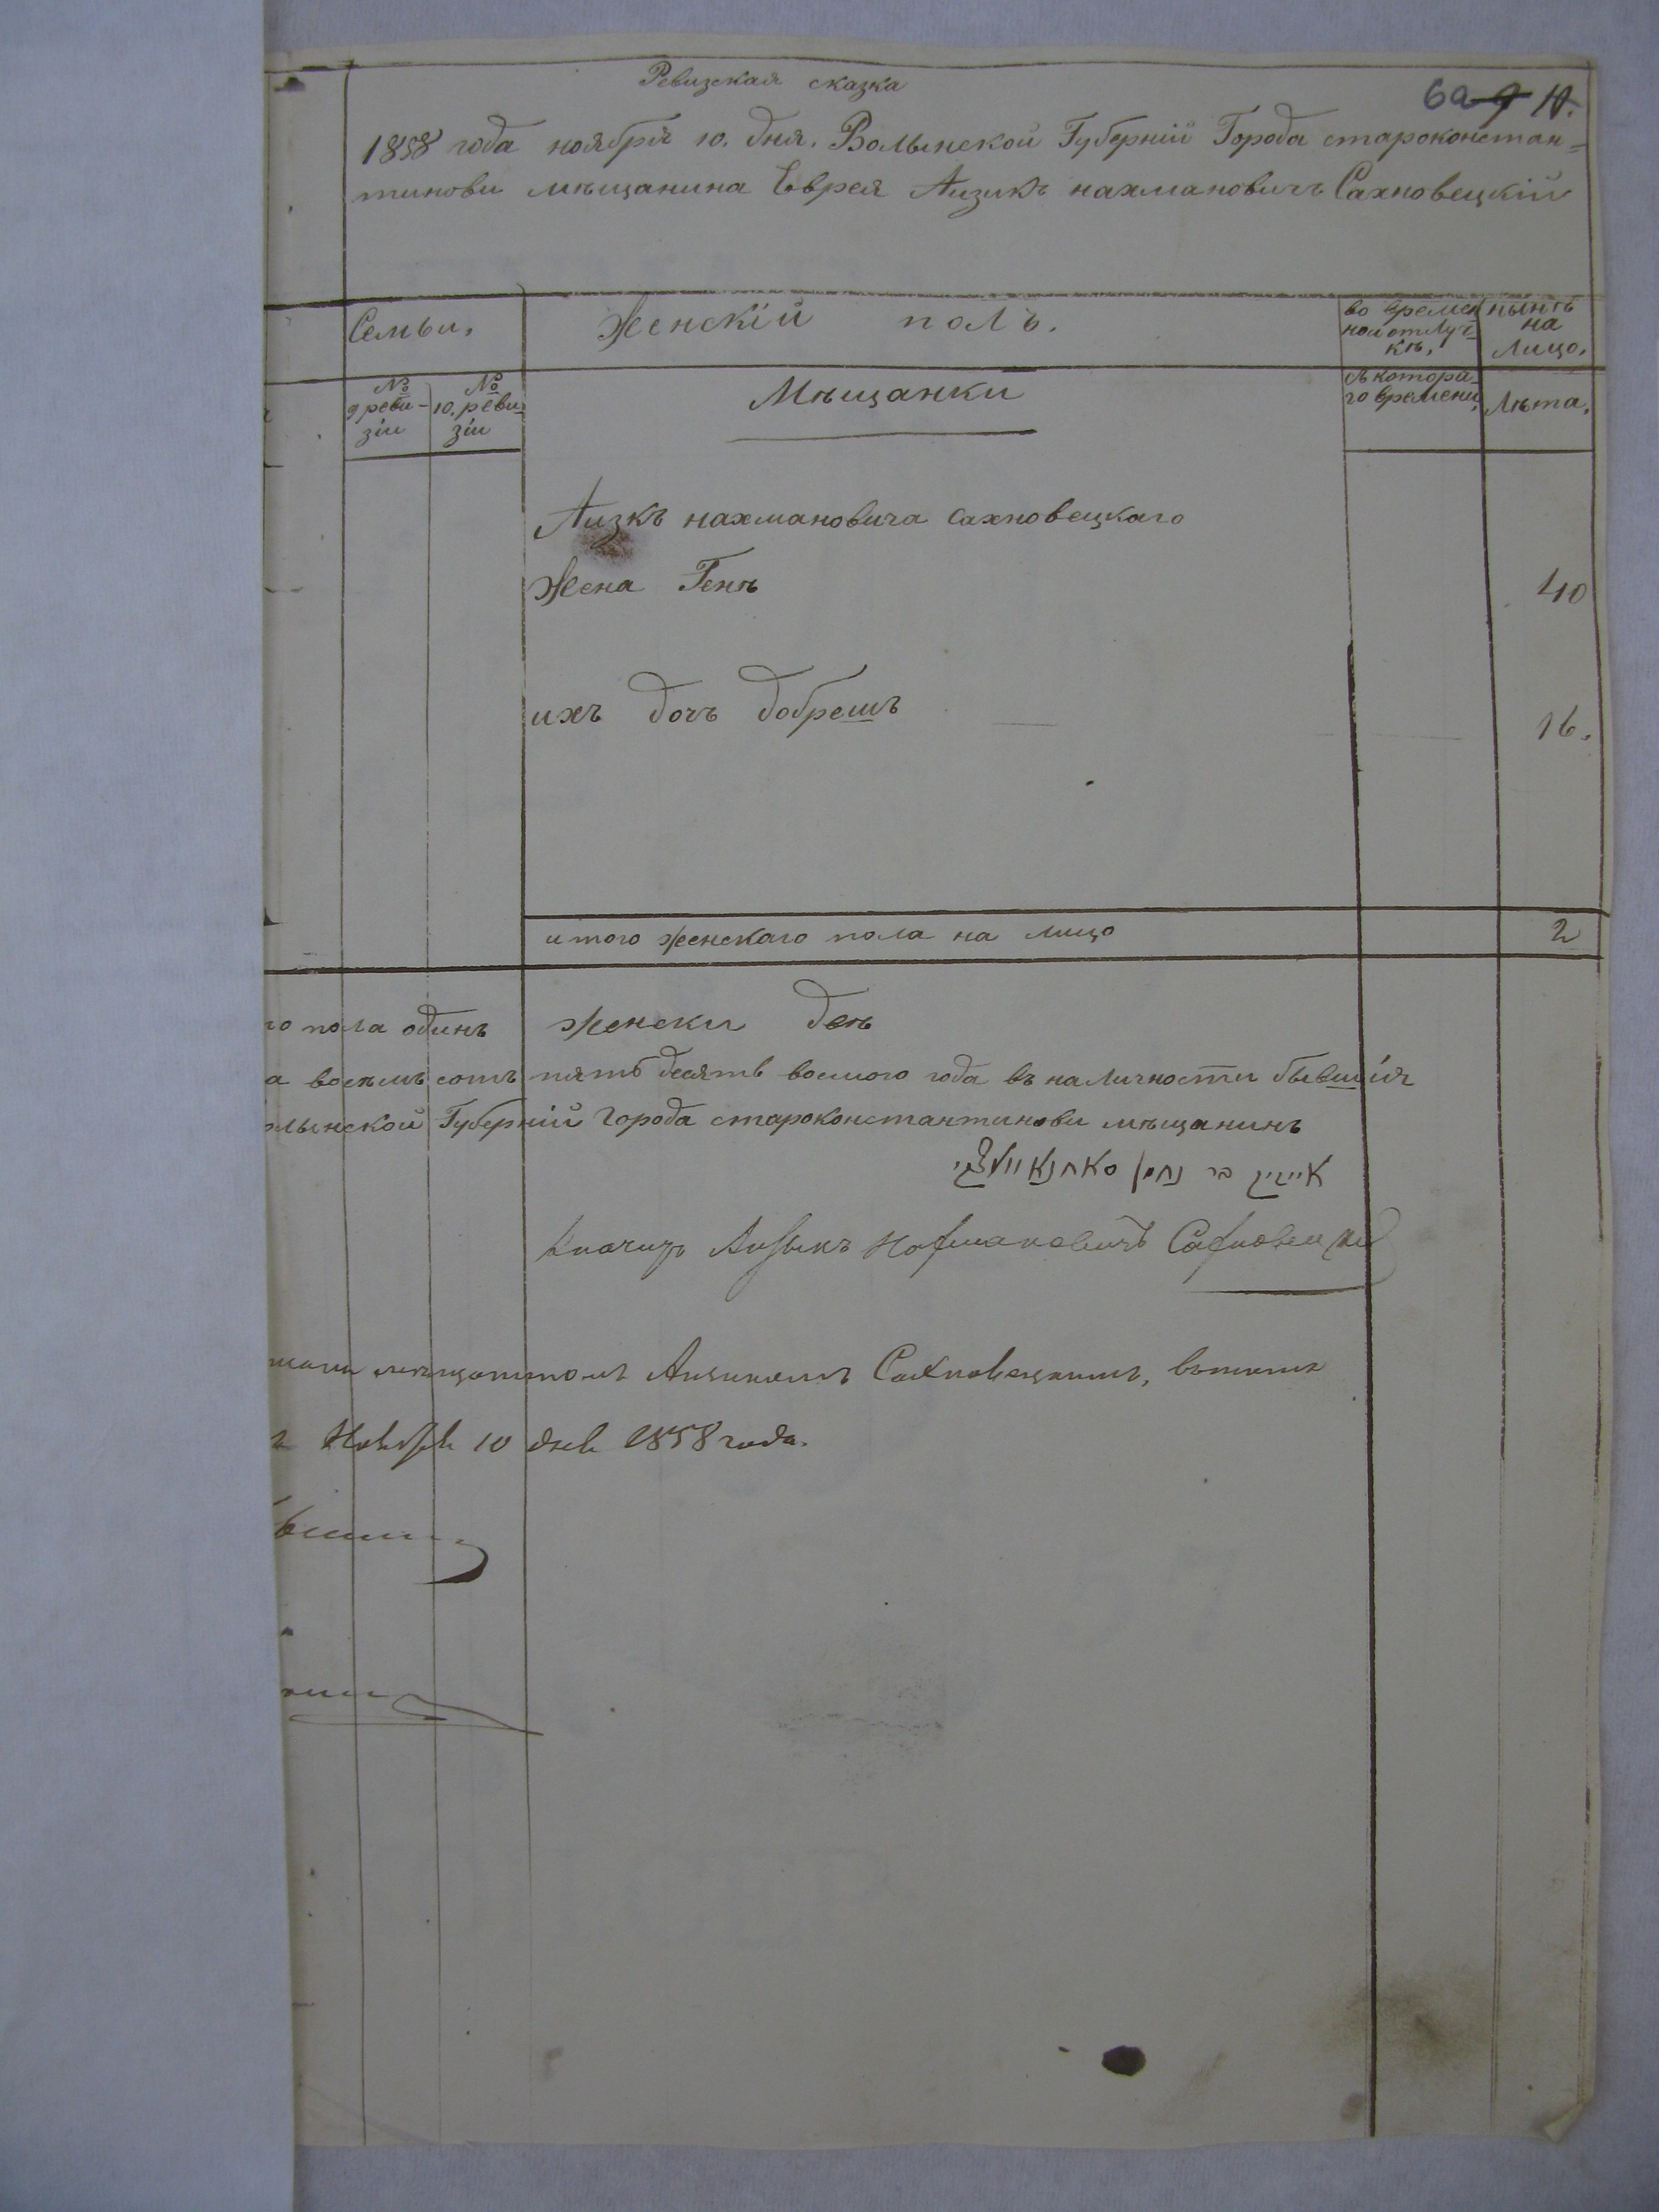 Ревизская сказка
6а 9 10.
1858 года ноября 10. дня. Волынской Губерніи Города староконстан=
тинови мѣщанина Еврея Аизикъ нахмановичъ Сахновецкій
Семьи. Женскій полъ. во времен ной отлуч- кѣ. нынѣ на лицо.
№ 9 реви- зіи № 10. реви- зіи Мѣщанки съ котора- го времени. Лѣта.
Аизкъ нахмановича сахновецкаго
Жена Генѣ 40
ихъ дочъ добрешъ 16.
итого женскаго пола на лицо 2
го пола одинъ женски две
а восемъ сотъ пятъ десятъ восмого года въ наличности бывшія
олынской Губерніи Города староконстантинови мѣщанинъ
אייזיק בר נחמן סאחנאוועצקי
Аизыкъ Нахмановичъ Сахновецкій
Сахновецкимъ,
Ноября 10 дня 1858 года.